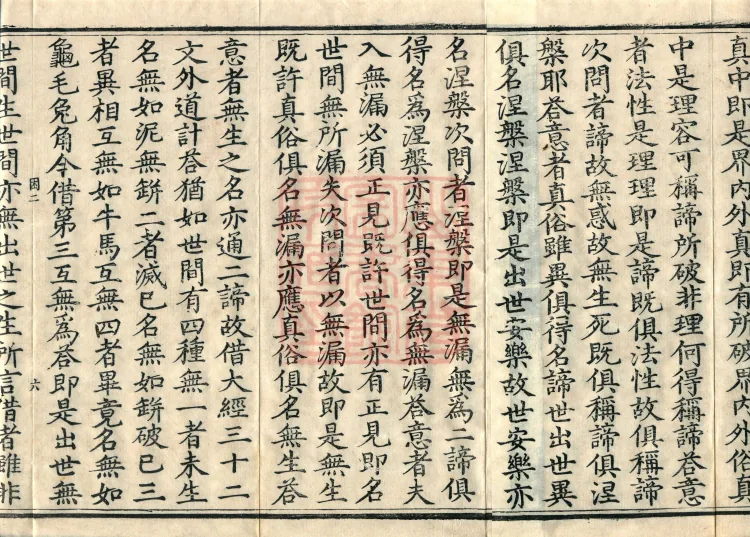 真中即是界内外真即有所破界内外俗真
中是理容可稱諦所破非理何得稱諦荅意
者法性是理理即是諦既俱法性故俱稱諦
次問者諦故無惑故無生死既俱稱諦俱涅
槃耶荅意者真俗雖異俱得名諦世出世異
俱名涅槃涅槃即是出世安樂故世安樂亦
名涅槃次問者涅槃即是無漏無爲二諦俱
得名爲涅槃亦應俱得名爲無漏荅意者夫
入無漏必須正見既許世間亦有正見即名
世間無所漏失次問者以無漏故即是無生
既許真俗俱名無漏亦應真俗俱名無生荅
意者無生之名亦通二諦故借大經三十二
文外道計荅猶如世間有四種無一者未生
名無如泥無缾二者滅已名無如缾破已三
者異相互無如牛馬互無四者畢竟名無如
龜毛兔角今借第三互無爲荅即是出世無
因二 六
世間生世間亦無出世之生所言借者雖非